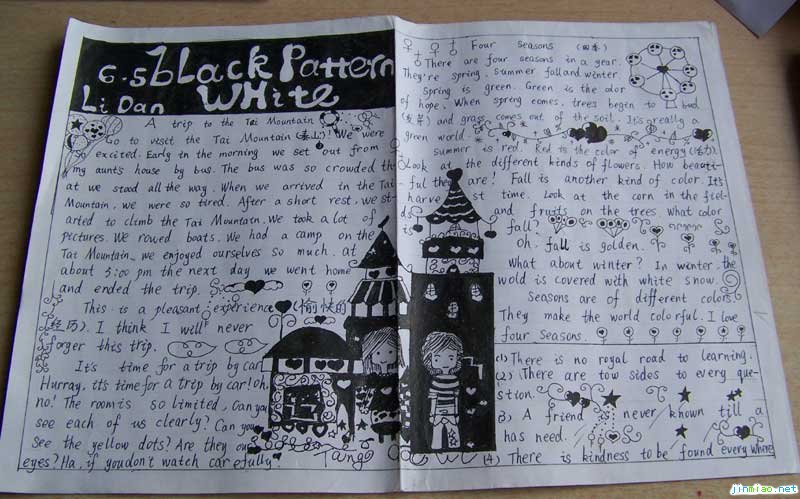 6.5 BLack Pattern
Li Dan WHite
A trip to the Tai Mountain
Go to visit the Tai Mountain (泰山)! We were
so excited. Early in the morning we set out from
my aunt's house by bus. The bus was so crowded th-
at we stood all the way. When we arrived in the Tai
Mountain, we were so tired. After a short rest, we st-
arted to climb the Tai Mountain. We took a lot of
pictures. We rowed boats. We had a camp on the
Tai Mountain. we enjoyed ourselves so much. at
about 5:00 pm the next day we went home
and ended the trip.
This is a pleasant experience (愉快的
经历). I think I will never
forger this trip.
It's time for a trip by car
Hurray, it's time for a trip by car! oh,
no! The room is so limited. Can you
see each of us clearly? Can you
see the yellow dots? Are they our
eyes? Ha, if you don't watch carefully.
Four Seasons (四季)
There are four seasons in a year.
They're spring, summer fall and winter
Spring is green. Green is the color
of hope. When spring comes, trees begin to bud
(发芽) and grass comes out of the soil. It's really a
green world
Summer is red. Red is the color of energy (活力).
Look at the different kinds of flowers. How beauti-
ful they are! Fall is another kind of color. It's
harvest time. Look at the corn in the fiel-
ds and fruits on the trees. What color
is fall?
Oh. fall is golden.
What about winter? In winter. the
wold is covered with white snow.
Seasons are of different colors
They make the world colorful. I love
four seasons.
(1) There is no royal road to learning.
(2) There are tow sides to every que-
stion.
(3) A friend is never known till a
has need.
(4) There is kindness to be found everywhere
jinmiao.net